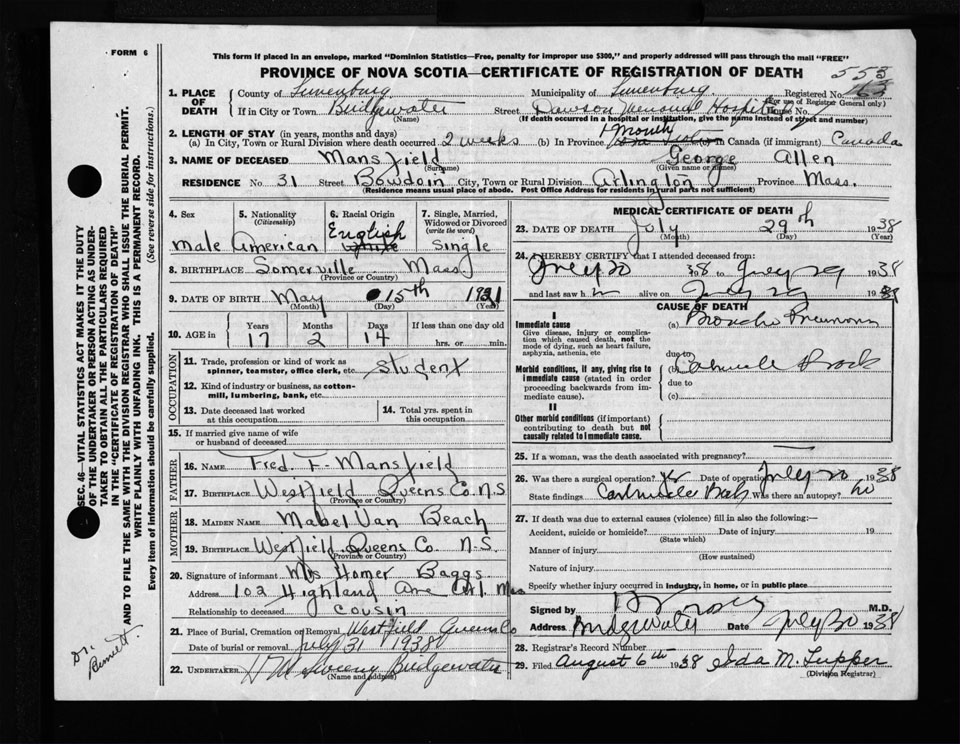 FORM 6
This form if placed in an envelope, marked "Dominion Statistics—Free, penalty for improper use $300," and properly addressed will pass through the mail "FREE"
PROVINCE OF NOVA SCOTIA—CERTIFICATE OF REGISTRATION OF DEATH
553
1. PLACE OF DEATH
County of Lunenburg Municipality of Lunenburg Registered No. 163
(For use of Registrar General only)
If in City or Town Bridgewater Street Dawson Memorial Hospital House No.
(Name) (If death occurred in a hospital or institution, give the name instead of street and number)
2. LENGTH OF STAY (in years, months and days)
(a) In City, Town or Rural Division where death occurred 2 weeks (b) In Province 1 Month (c) In Canada (if immigrant) Canada
3. NAME OF DECEASED Mansfield George Allen
(Surname) (Given name or names)
RESIDENCE No. 31 Street Bowdoin City, Town or Rural Division Arlington Province Mass.
(Residence means usual place of abode. Post Office Address for residents in rural parts not sufficient)
4. Sex
Male
5. Nationality
(Citizenship)
American
6. Racial Origin
English
White
7. Single, Married, Widowed or Divorced
(write the word)
Single
8. BIRTHPLACE Somerville Mass
(Province or Country)
9. DATE OF BIRTH May 15th 1921
(Month) (Day) (Year)
10. AGE in
Years Months Days If less than one day old
17 2 14 hrs. or min.
OCCUPATION
11. Trade, profession or kind of work as
spinner, teamster, office clerk, etc. Student
12. Kind of industry or business, as cotton-
mill, lumbering, bank, etc.
13. Date deceased last worked
at this occupation
14. Total yrs. spent in
this occupation
15. If married give name of wife
or husband of deceased
FATHER
16. NAME Fred. F. Mansfield
17. BIRTHPLACE Westfield Queens Co. N.S.
(Province or Country)
MOTHER
18. MAIDEN NAME Mabel Van Beach
19. BIRTHPLACE Westfield Queens Co N.S.
(Province or Country)
20. Signature of informant Mrs Homer Baggs
Address 102 Highland Ave Arl. Mas
Relationship to deceased cousin
21. Place of Burial, Cremation or Removal Westfield Queens Co
Date of burial or removal July 31 1938
22. UNDERTAKER Sweeny Bridgewater
(Name and address)
MEDICAL CERTIFICATE OF DEATH
23. DATE OF DEATH July 29th 1938
(Month) (Day) (Year)
24. I HEREBY CERTIFY that I attended deceased from:
July 20 1938 to July 29 1938
and last saw h im alive on July 29 1938
CAUSE OF DEATH
I
Immediate cause
Give disease, injury or complication which caused death, not the mode of dying, such as heart failure, asphyxia, asthenia, etc
(a) Broncho Pneumonia
Morbid conditions, if any, giving rise to immediate cause (stated in order proceeding backwards from immediate cause).
due to
(b)
due to
(c)
II
Other morbid conditions (if important) contributing to death but not causally related to immediate cause.
25. If a woman, was the death associated with pregnancy?
26. Was there a surgical operation? Date of operation July 20 1938
State findings Was there an autopsy? no
27. If death was due to external causes (violence) fill in also the following:—
Accident, suicide or homicide? Date of injury 19
(State which)
Manner of injury
(How sustained)
Nature of injury
Specify whether injury occurred in industry, in home, or in public place
Signed by M.D.
Address Bridgewater Date July 30 1938
28. Registrar's Record Number
29. Filed August 6th 1938 Ida M. Tupper
(Division Registrar)
SEC. 46—VITAL STATISTICS ACT MAKES IT THE DUTY
OF THE UNDERTAKER OR PERSON ACTING AS UNDER-
TAKER TO OBTAIN ALL THE PARTICULARS REQUIRED
IN THE "CERTIFICATE OF REGISTRATION OF DEATH"
AND TO FILE THE SAME WITH THE DIVISION REGISTRAR WHO SHALL ISSUE THE BURIAL PERMIT.
WRITE PLAINLY WITH UNFADING INK. THIS IS A PERMANENT RECORD.
Every item of information should be carefully supplied. (See reverse side for instructions.)
Dr.